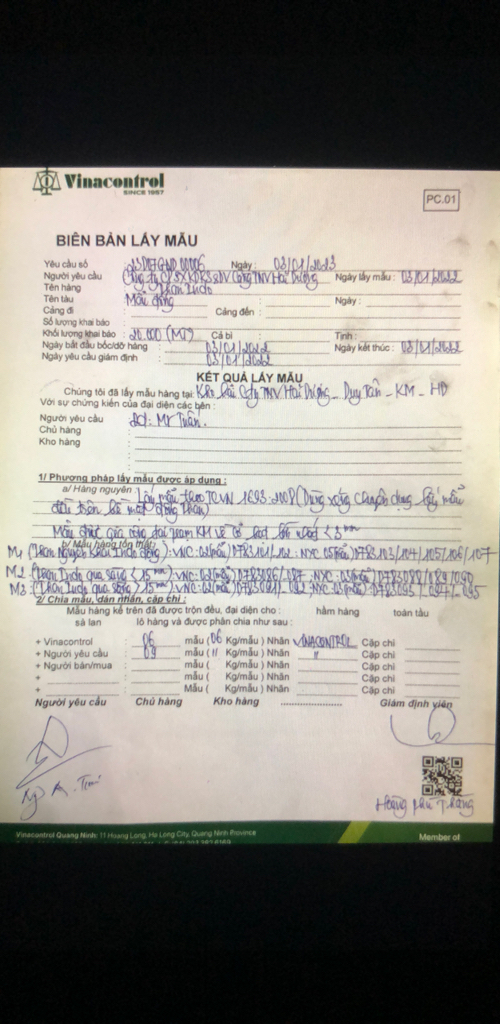 Vinacontrol
SINCE 1957
PC.01
BIÊN BẢN LẤY MẪU
Yêu cầu số 23DHGND00006 Ngày: 03/01/2023
Người yêu cầu Công ty CP SX KD KS & DV Cảng TNV Hải Dương Ngày lấy mẫu: 03/01/2022
Tên hàng Than Indo
Tên tàu Mẫu đống : Ngày:
Cảng đi : Cảng đến:
Số lượng khai báo :
Khối lượng khai báo : 20.000 (MT) Cả bì : Tịnh:
Ngày bắt đầu bốc/dỡ hàng : 03/01/2022 Ngày kết thúc: 03/01/2022
Ngày yêu cầu giám định : 03/01/2022
KẾT QUẢ LẤY MẪU
Chúng tôi đã lấy mẫu hàng tại: Kho bãi Cảng TNV Hải Dương - Duy Tân - KM - HD
Với sự chứng kiến của đại diện các bên:
Người yêu cầu : Mr Tuấn.
Chủ hàng :
Kho hàng :
1/ Phương pháp lấy mẫu được áp dụng:
a/ Hàng nguyên: Lấy mẫu theo TCVN 1693:2008 (Dùng xẻng chuyên dụng lấy mẫu
đều trên bề mặt đống than)
Mẫu được gia công tại trạm KM về cỡ hạt <3mm
b/ Mẫu hàng tổn thất:
M1 (Than Nguyên Khai Indo đống): VNC: 02(mẫu) D783101/102: NYC 05(mẫu) D783103/104/105/106/107
M2 (Than Indo qua sàng <15mm): VNC: 02(mẫu) D783086/087: NYC: 03(mẫu) D783088/089/090
M3: (Than Indo qua sàng >15mm): VNC: 02(mẫu) D783091/092 NYC: 03(mẫu) D783093/094/095
2/ Chia mẫu, dán nhãn, cặp chì:
Mẫu hàng kể trên đã được trộn đều, đại diện cho: hầm hàng toàn tàu
sà lan lô hàng và được phân chia như sau:
+ Vinacontrol 06 mẫu (06 Kg/mẫu) Nhãn VINACONTROL Cặp chì
+ Người yêu cầu 09 mẫu ( " Kg/mẫu) Nhãn " Cặp chì
+ Người bán/mua mẫu ( Kg/mẫu) Nhãn Cặp chì
+ Mẫu ( Kg/mẫu) Nhãn Cặp chì
+ Mẫu ( Kg/mẫu) Nhãn Cặp chì
Người yêu cầu Chủ hàng Kho hàng .................. Giám định viên
Hoàng Phú Thắng
Vinacontrol Quang Ninh: 11 Hoang Long, Ha Long City, Quang Ninh Province
Member of